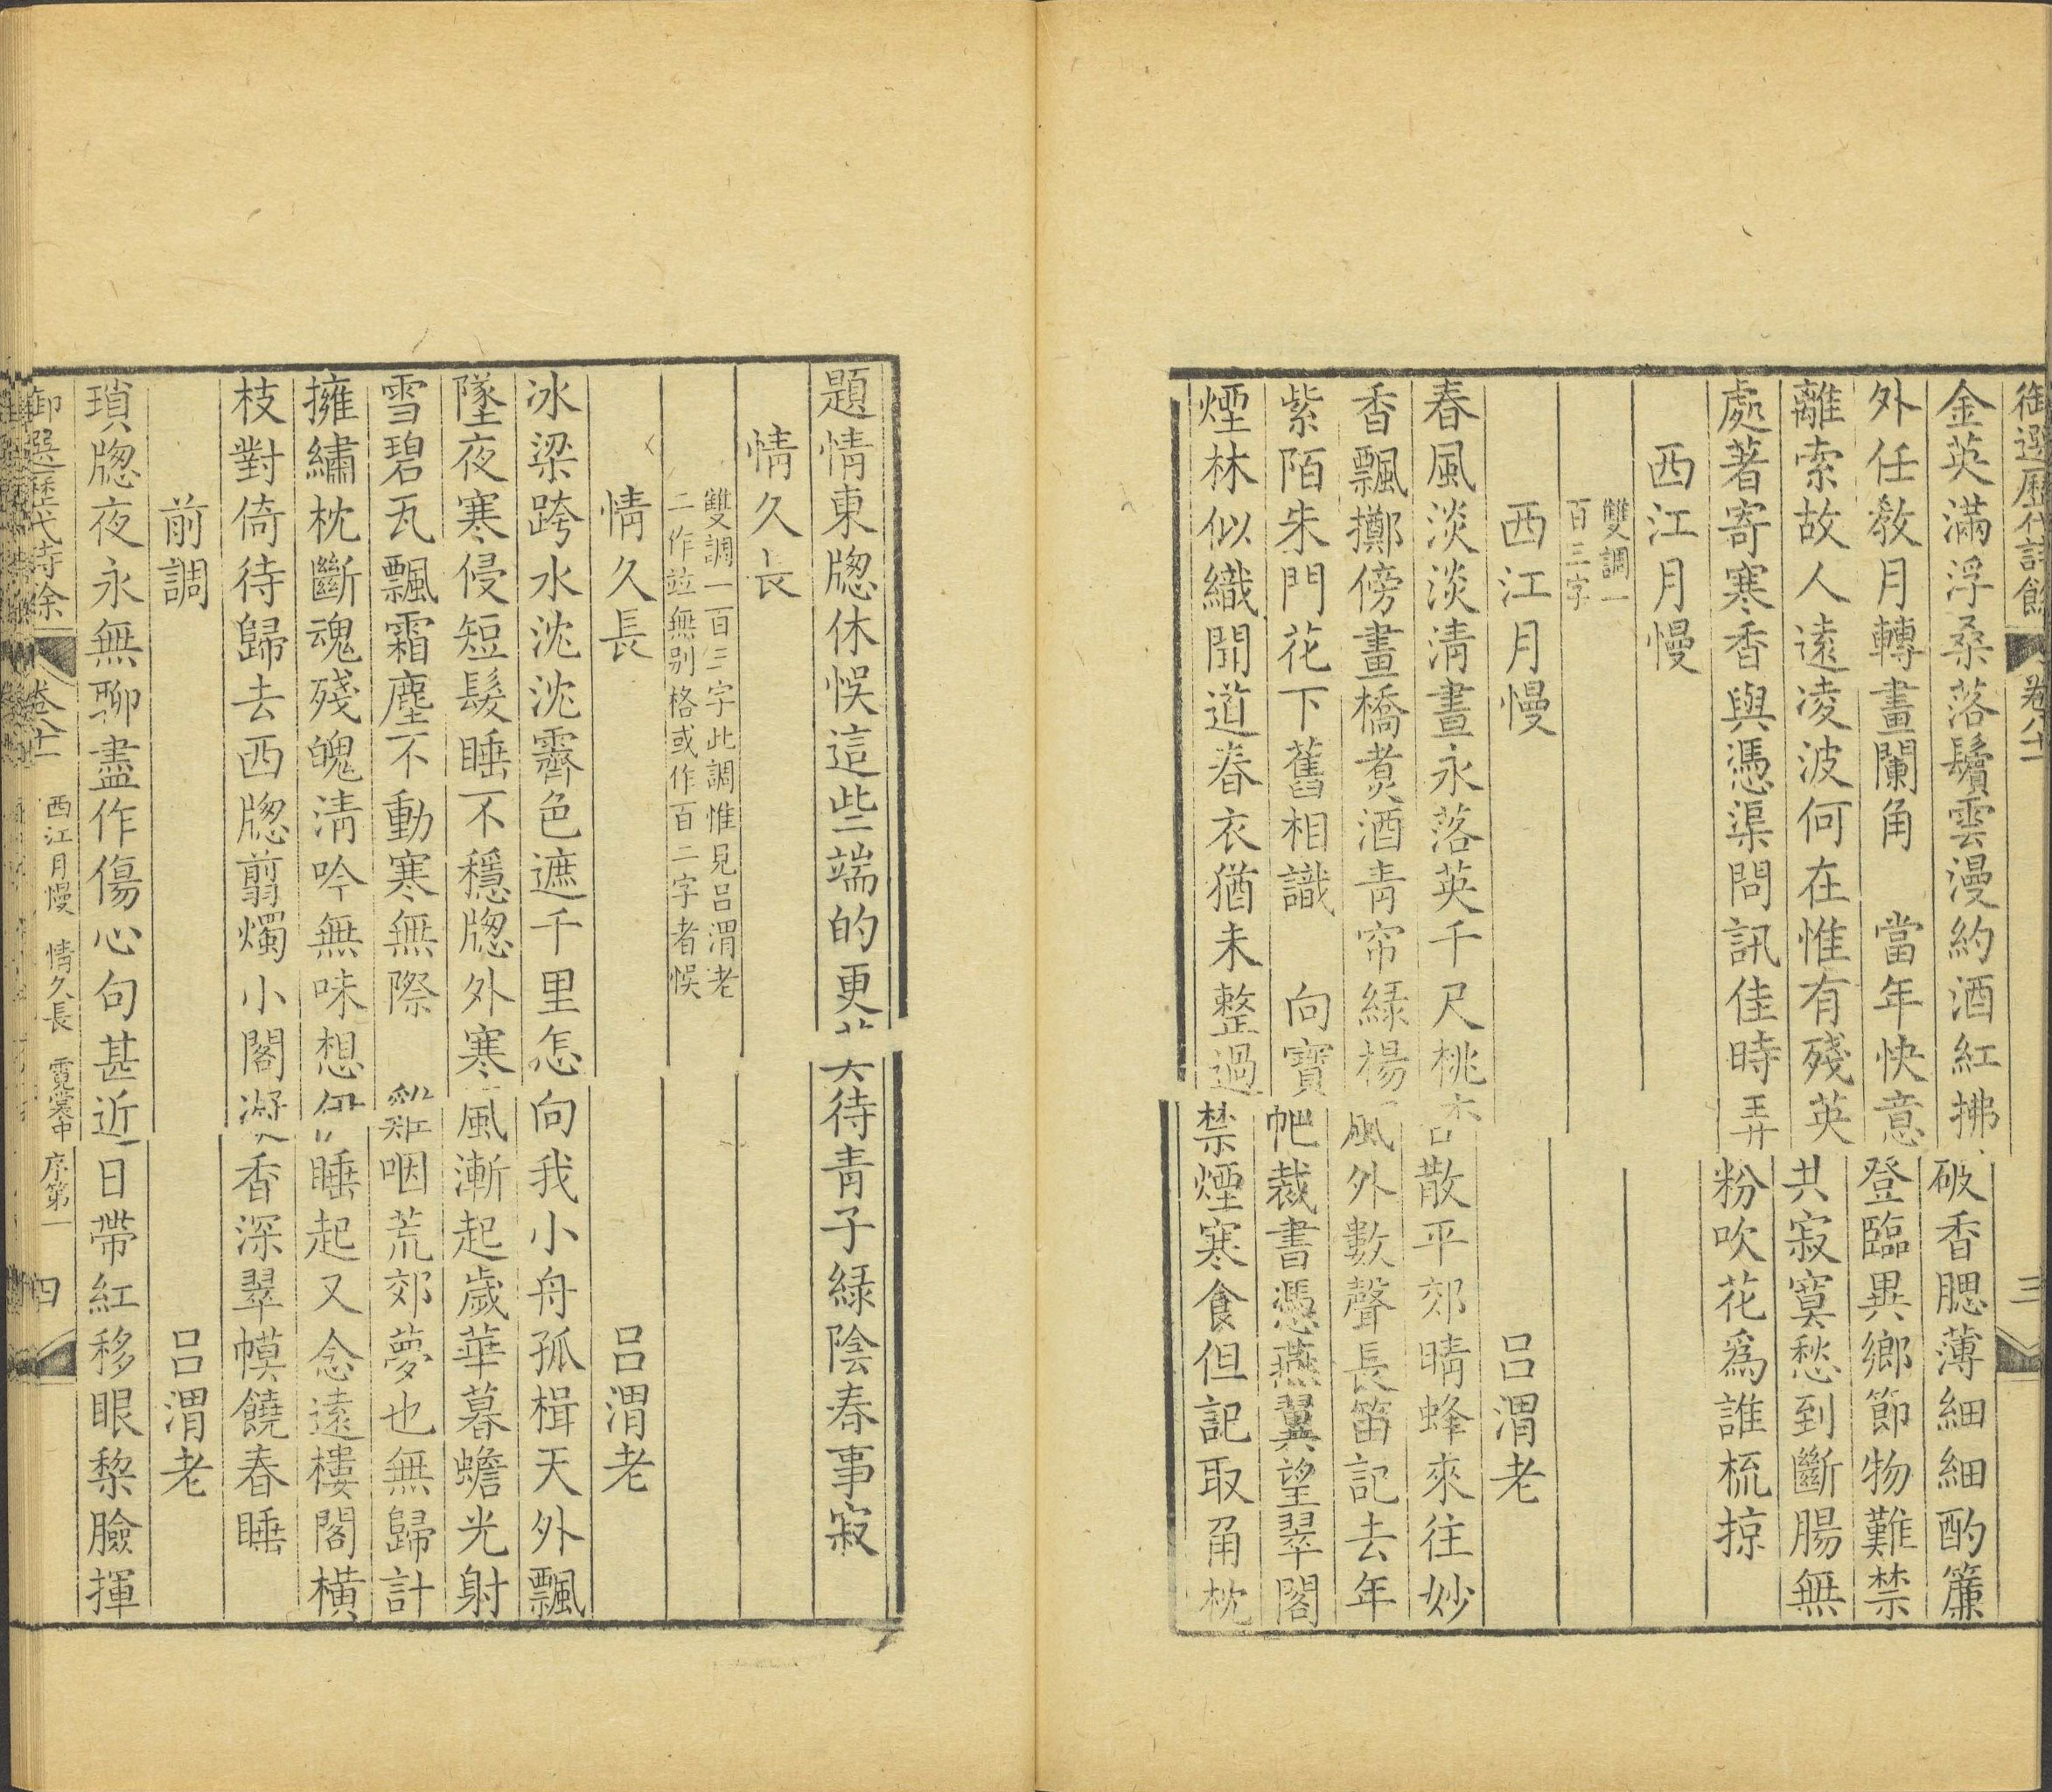 御選歷代詩餘 卷八十 三
金英滿浮桑落鬢雲漫約酒紅拂破香腮薄細細酌簾
外任敎月轉畫闌角 當年快意登臨異鄉節物難禁
離索故人遠凌波何在惟有殘英共寂寞愁到斷腸無
處著寄寒香與憑渠問訊佳時弄粉吹花爲誰梳掠
西江月慢
雙調一
百三字
西江月慢 呂渭老
春風淡淡淸晝永落英千尺桃杏散平郊晴蜂來往妙
香飄擲傍畫橋煮酒靑帘綠楊風外數聲長笛記去年
紫陌朱門花下舊相識 向寶帊裁書憑燕翼望翠閣
煙林似織聞道春衣猶未整過禁煙寒食但記取角枕
題情東牕休悞這些端的更待靑子綠陰春事寂
情久長
雙調一百三字此調惟見呂渭老
二作竝無別格或作百二字者悞
情久長 呂渭老
冰梁跨水沈沈霽色遮千里怎向我小舟孤楫天外飄
墜夜寒侵短髮睡不穩牕外寒風漸起歲華暮蟾光射
雪碧瓦飄霜塵不動寒無際 雞咽荒郊夢也無歸計
擁繡枕斷魂殘魄淸吟無味想伊睡起又念遠樓閣橫
枝對倚待歸去西牕翦燭小閣凝香深翠幙饒春睡
前調 呂渭老
瑣牕夜永無聊盡作傷心句甚近日帶紅移眼棃臉揮
御選歷代詩餘 卷八十 西江月慢 情久長 霓裳中序第一 四